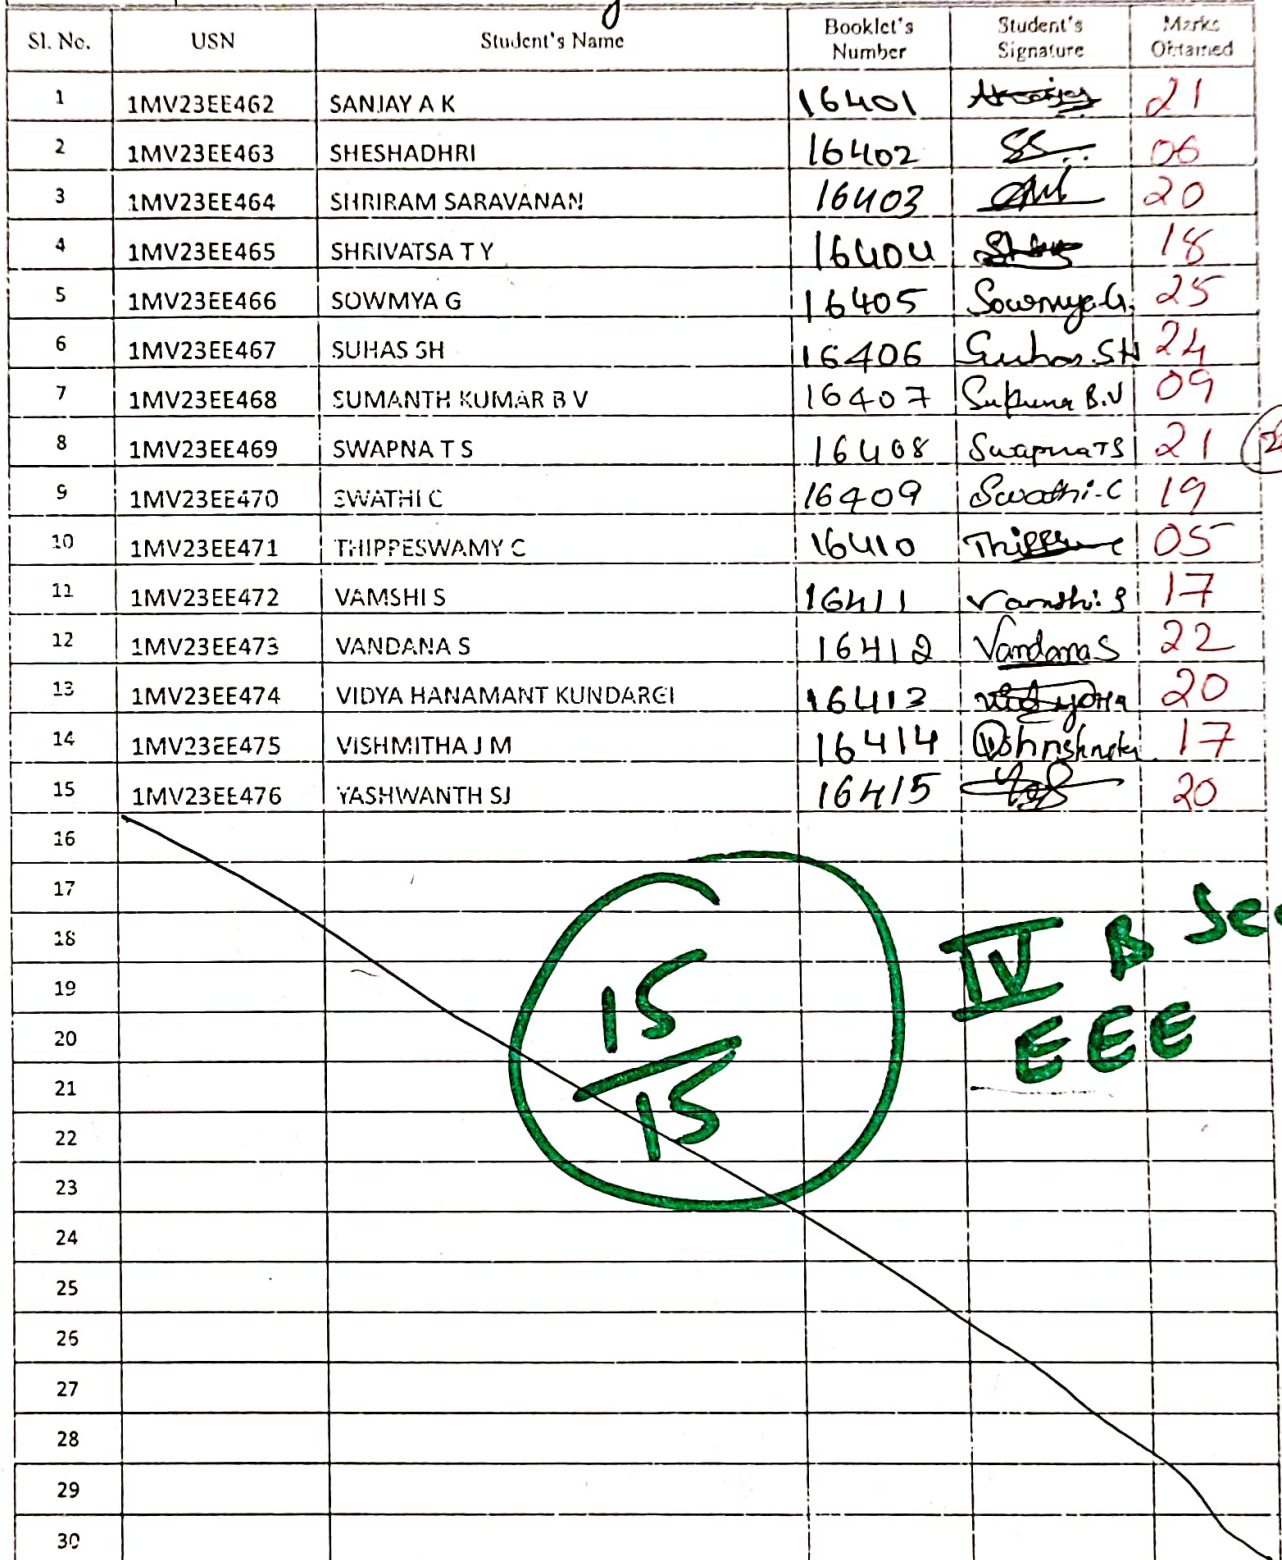 Sl. No. USN Student's Name Booklet's Number Student's Signature Marks Obtained
1 1MV23EE462 SANJAY A K 16401 21
2 1MV23EE463 SHESHADHRI 16402 06
3 1MV23EE464 SHRIRAM SARAVANAN 16403 20
4 1MV23EE465 SHRIVATSA T Y 16404 18
5 1MV23EE466 SOWMYA G 16405 Sowmya.G. 25
6 1MV23EE467 SUHAS SH 16406 Suhas.SH 24
7 1MV23EE468 SUMANTH KUMAR B V 16407 B.V 09
8 1MV23EE469 SWAPNA T S 16408 Swapna TS 21
9 1MV23EE470 SWATHI C 16409 Swathi-C 19
10 1MV23EE471 THIPPESWAMY C 16410 05
11 1MV23EE472 VAMSHI S 16411 Vamshi.S 17
12 1MV23EE473 VANDANA S 16412 Vandana S 22
13 1MV23EE474 VIDYA HANAMANT KUNDARGI 16413 20
14 1MV23EE475 VISHMITHA J M 16414 17
15 1MV23EE476 YASHWANTH SJ 16415 20
16
17
18
19
20
21
22
23
24
25
26
27
28
29
30
15
15
IV B Sec
EEE